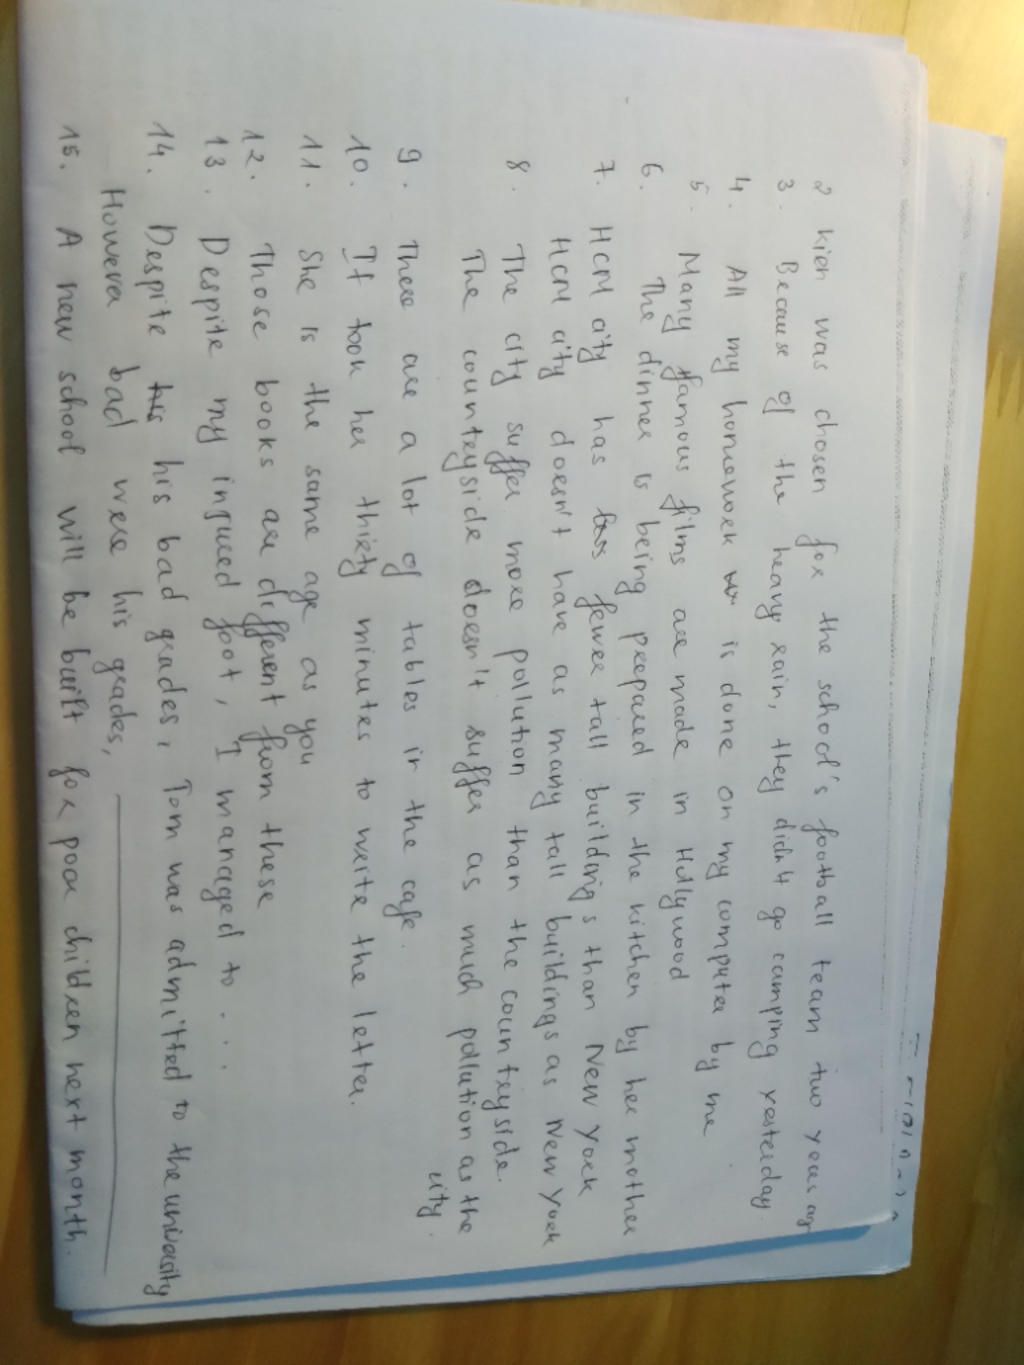 2 Kien was chosen for the school's football team two years ago
3. Because of the heavy rain, they didn't go camping yesterday.
4. All my homework is done on my computer by me
5. Many famous films are made in Hollywood
6. The dinner is being prepared in the kitchen by her mother
7. HCM city has fewer tall buildings than New York
HCM city doesn't have as many tall buildings as New York
8. The city suffer more pollution than the countryside.
The countryside doesn't suffer as much pollution as the
city.
9. There are a lot of tables in the cafe.
10. It took her thirty minutes to write the letter.
11. She is the same age as you
12. Those books are different from these
13. Despite my injured foot, I managed to . . .
14. Despite his bad grades, Tom was admitted to the university
However bad were his grades,
15. A new school will be built for poor children next month.